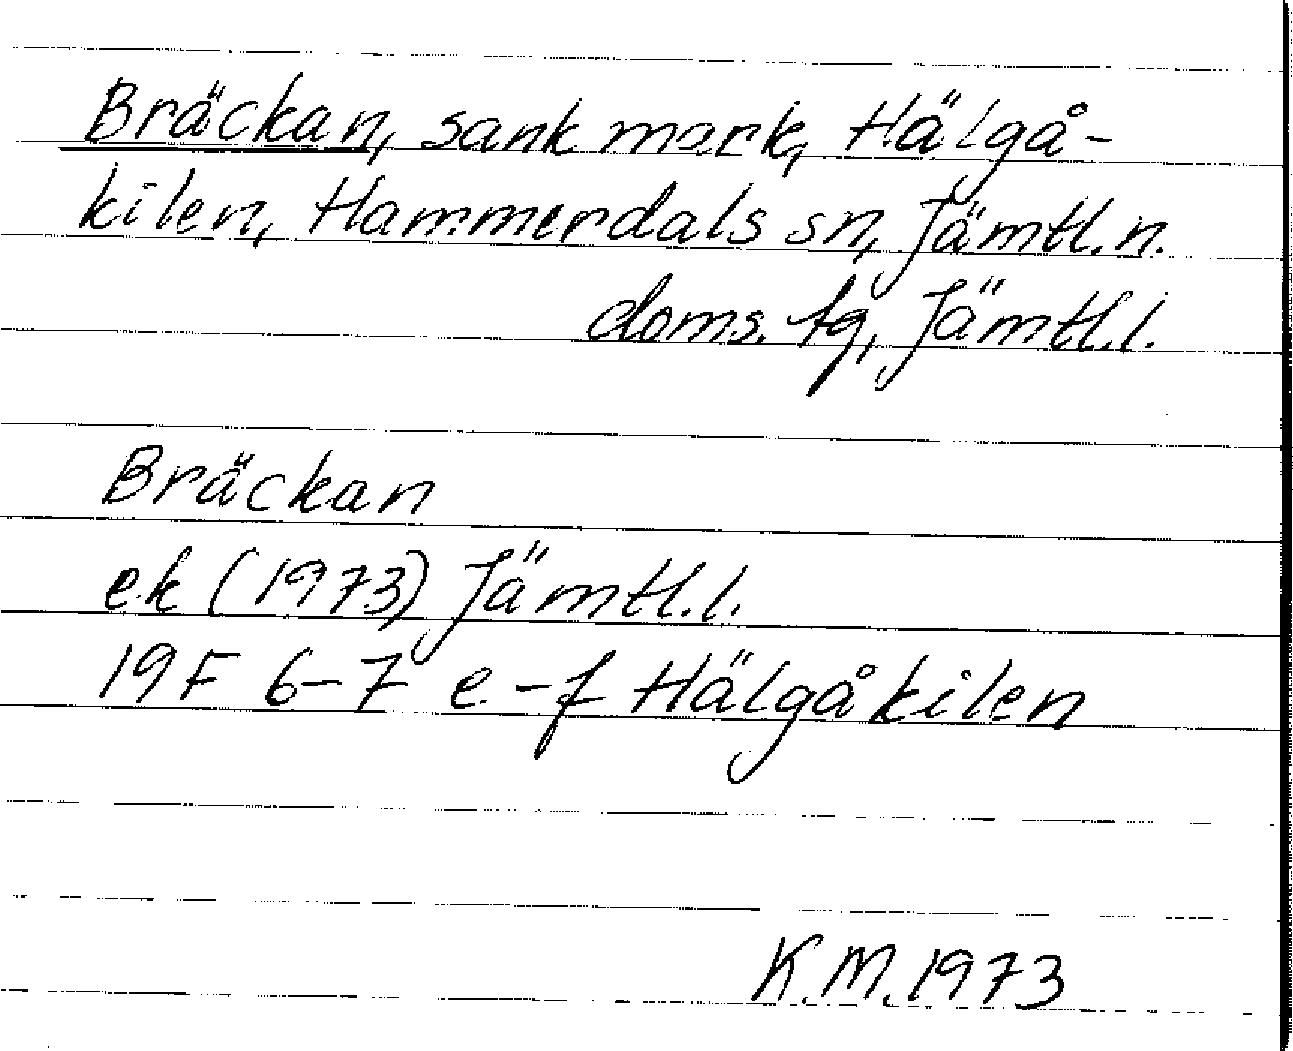 Bräckan, sank mark, Hälgå-
kilen, Hammerdals sn, Jämtl. n.
doms. tg, Jämtl. l.
Bräckan
ek (1973) Jämtl. l.
19F 6-7 e-f Hälgåkilen
K.M. 1973